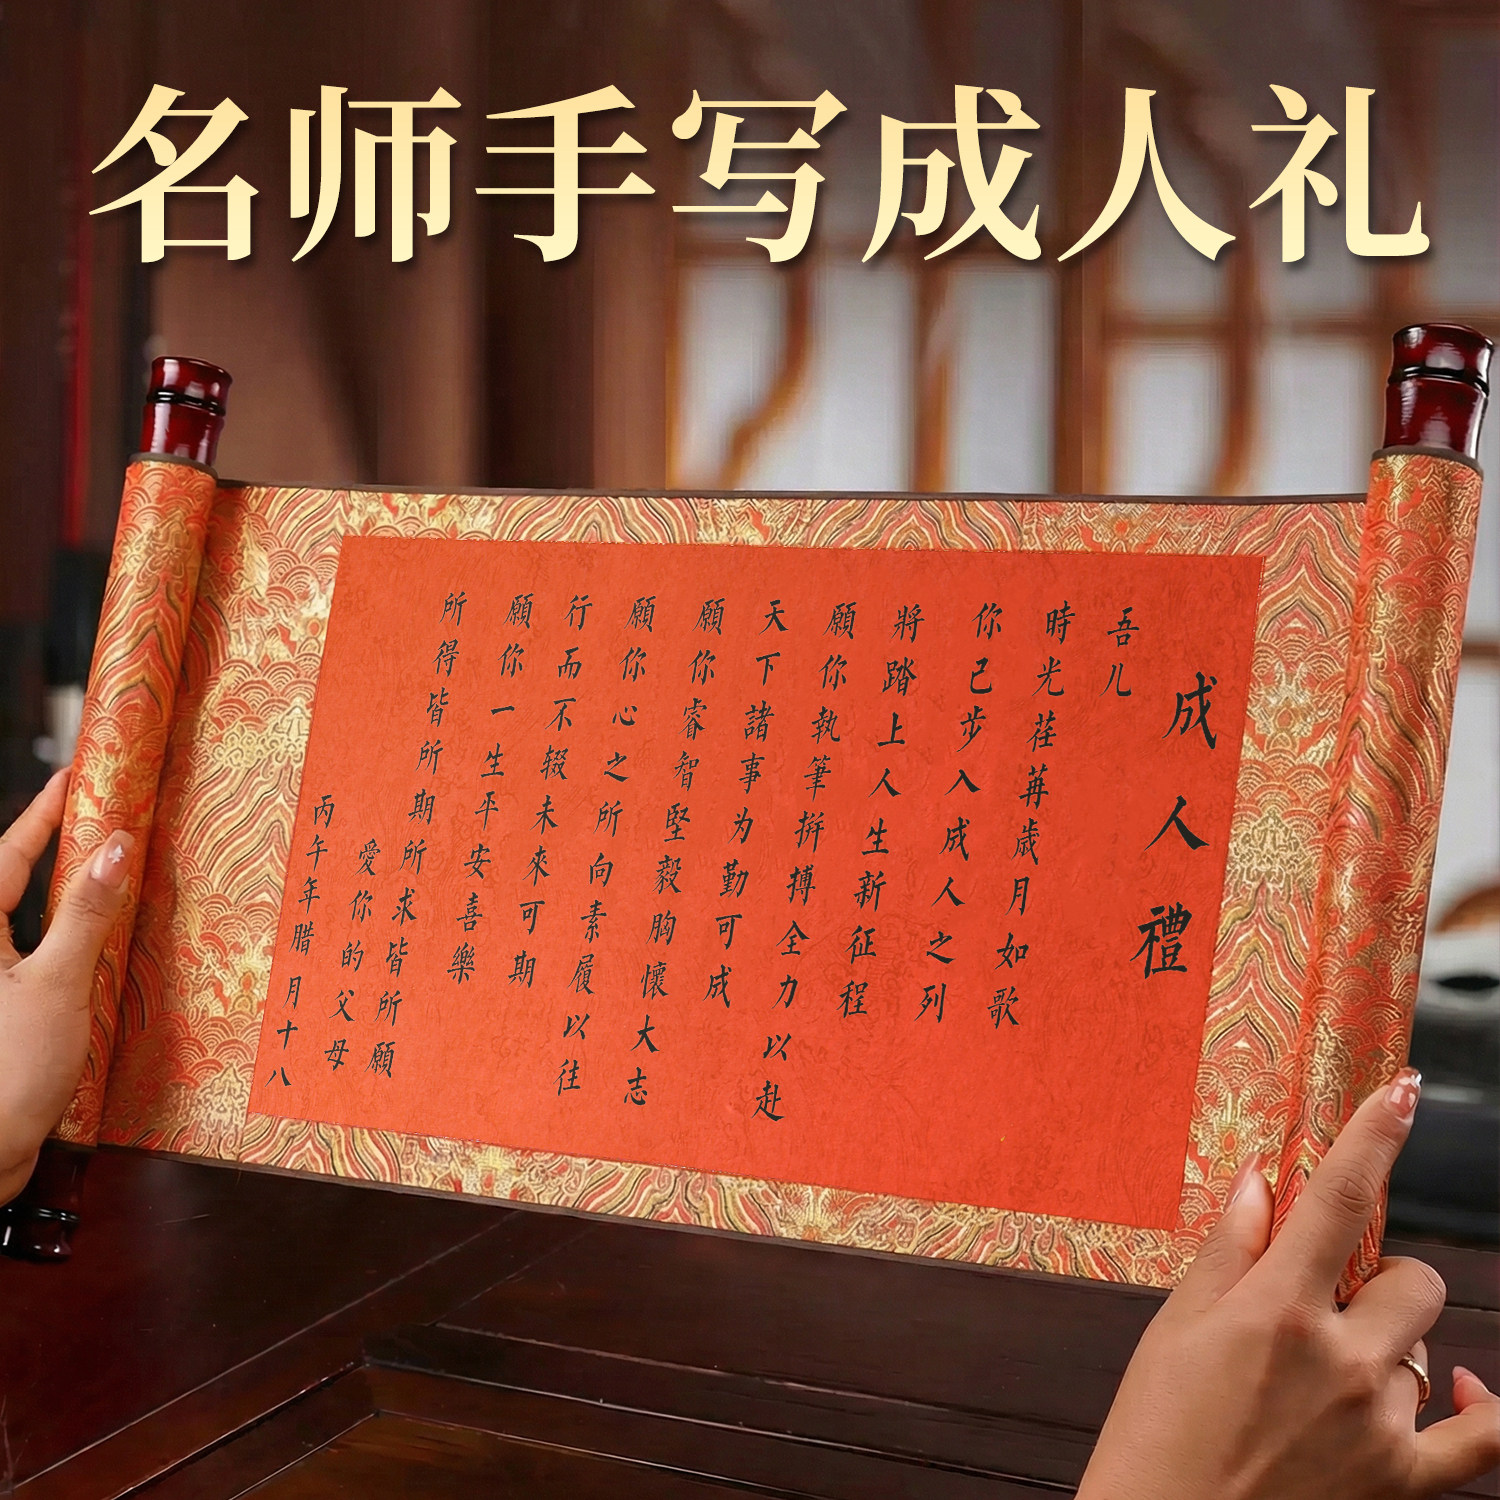 名师手写成人礼
成人禮
吾儿
時光荏苒歲月如歌
你已步入成人之列
將踏上人生新征程
願你執筆拼搏全力以赴
天下諸事为勤可成
願你睿智堅毅胸懷大志
願你心之所向素履以往
行而不辍未來可期
願你一生平安喜樂
所得皆所期所求皆所願
愛你的父母
丙午年腊月十八